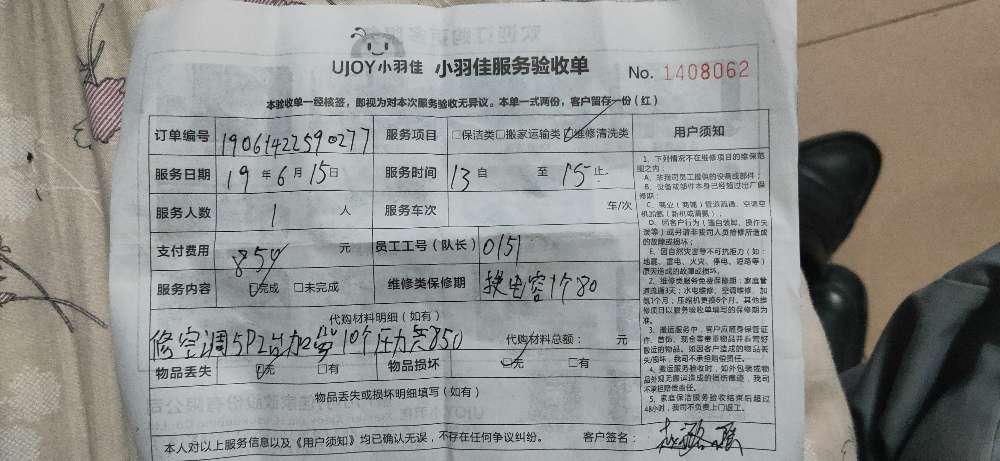 UJOY小羽佳 小羽佳服务验收单 No. 1408062
本验收单一经核签，即视为对本次服务验收无异议。本单一式两份，客户留存一份（红）
订单编号 19061422590277 服务项目 □保洁类□搬家运输类☑维修清洗类 用户须知
服务日期 19年6月15日 服务时间 13自 至 15止
服务人数 1 人 服务车次 车/次
支付费用 元 员工工号（队长） 0151
服务内容 ☑完成 □未完成 维修类保修期 换电容1个80
代购材料明细（如有）
修空调5P2台加 10个压力 850 代购材料总额： 元
物品丢失 ☑无 □有 物品损坏 ☑无 □有
物品丢失或损坏明细填写（如有）
本人对以上服务信息以及《用户须知》均已确认无误，不存在任何争议纠纷。 客户签名：
1、下列情况不在维修项目的维保范
围之内：
A、非我司员工提供的设备或部件；
B、设备或部件本身已经超过出厂保
修期；
E、因自然灾害等不可抗拒力（如：
地震、雷电、火灾、停电、短路等）
原因造成的故障或损坏。
2、维修类服务免费保修期：家庭管
道疏通3天；水电维修、空调维修、加
氟1个月；压缩机更换6个月。其他维
修项目以服务验收单填写的保修期为
准。
3、搬运服务中，客户应随身保管证
件、首饰、现金等贵重物品并看管好
搬运的物品。如因客户造成的物品丢
失/损坏，我司不承担赔偿责任。
4、搬运服务验收时，如外包装或物
品外观无搬运造成的损伤痕迹，我司
不承担赔偿责任。
5、家庭保洁服务验收结束后超过
48小时，我司不负责上门返工。